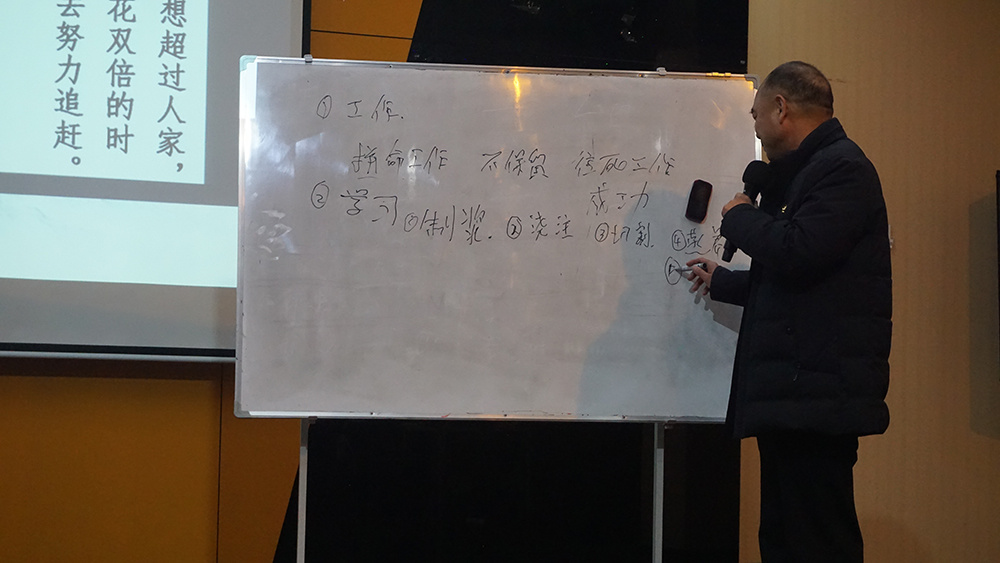 想超过人家，
花双倍的时
去努力追赶。
①工作.
拼命工作 不保留 往死工作
②学习 成功
①制浆. ②浇注 ③切割. ④蒸养